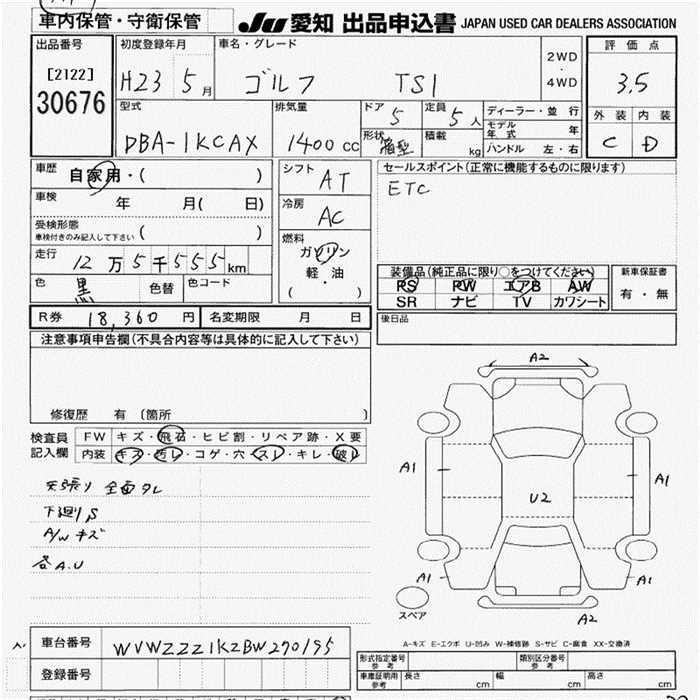 車内保管・守衛保管
JU 愛知 出品申込書 JAPAN USED CAR DEALERS ASSOCIATION
出品番号
[2122]
30676
初度登録年月
H23 5月
車名・グレード
ゴルフ TSI
2WD
・
4WD
評価点
3.5
外装 内装
C D
型式
DBA-1KCAX
排気量
1400cc
ドア
5
定員
5人
形状
箱型
積載
kg
ディーラー・並行
モデル年式 年
ハンドル 左・右
車歴
自家用・( )
車検
年 月( 日)
受検形態
車検付きのみ記入して下さい ( )
走行
12万5千555km
色
黒
色替
色コード
シフト
AT
冷房
AC
燃料
ガソリン
軽・油
( )
セールスポイント(正常に機能するものに限ります)
ETC
装備品(純正品に限り○をつけてください)
PS PW エアB AW
SR ナビ TV カワシート
新車保証書
有・無
R券 18,360円
名変期限 月 日
後日品
注意事項申告欄(不具合内容等は具体的に記入して下さい)
修復歴 有 (箇所 )
検査員
記入欄
FW キズ・飛石・ヒビ割・リペア跡・X要
内装 キズ・汚レ・コゲ・穴・スレ・キレ・破レ
天張り 全面タレ
下廻りS
A/W キズ
各A.U
A2
A1
A1
U2
A1
A1
A2
スペア
A-キズ E-エクボ U-凹み W-補修跡 S-サビ C-腐食 XX-交換済
車台番号
WVWZZZ1KZBW270195
登録番号
形式指定番号
参考
類別区分番号
参考
車庫証明用
参考
長さ cm
幅 cm
高さ cm